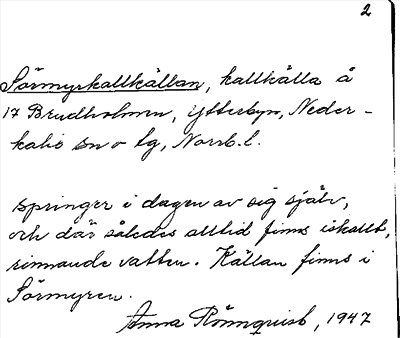 2
Sörmyrkallkällan, kallkälla å
17 Brudholmen, Ytterbyn, Neder-
kalix sn o tg, Norrb. l.
springer i dagen av sig själv,
och där således alltid finns iskallt,
rinnande vatten. Källan finns i
Sörmyren.
Anna Rönnqvist, 1947